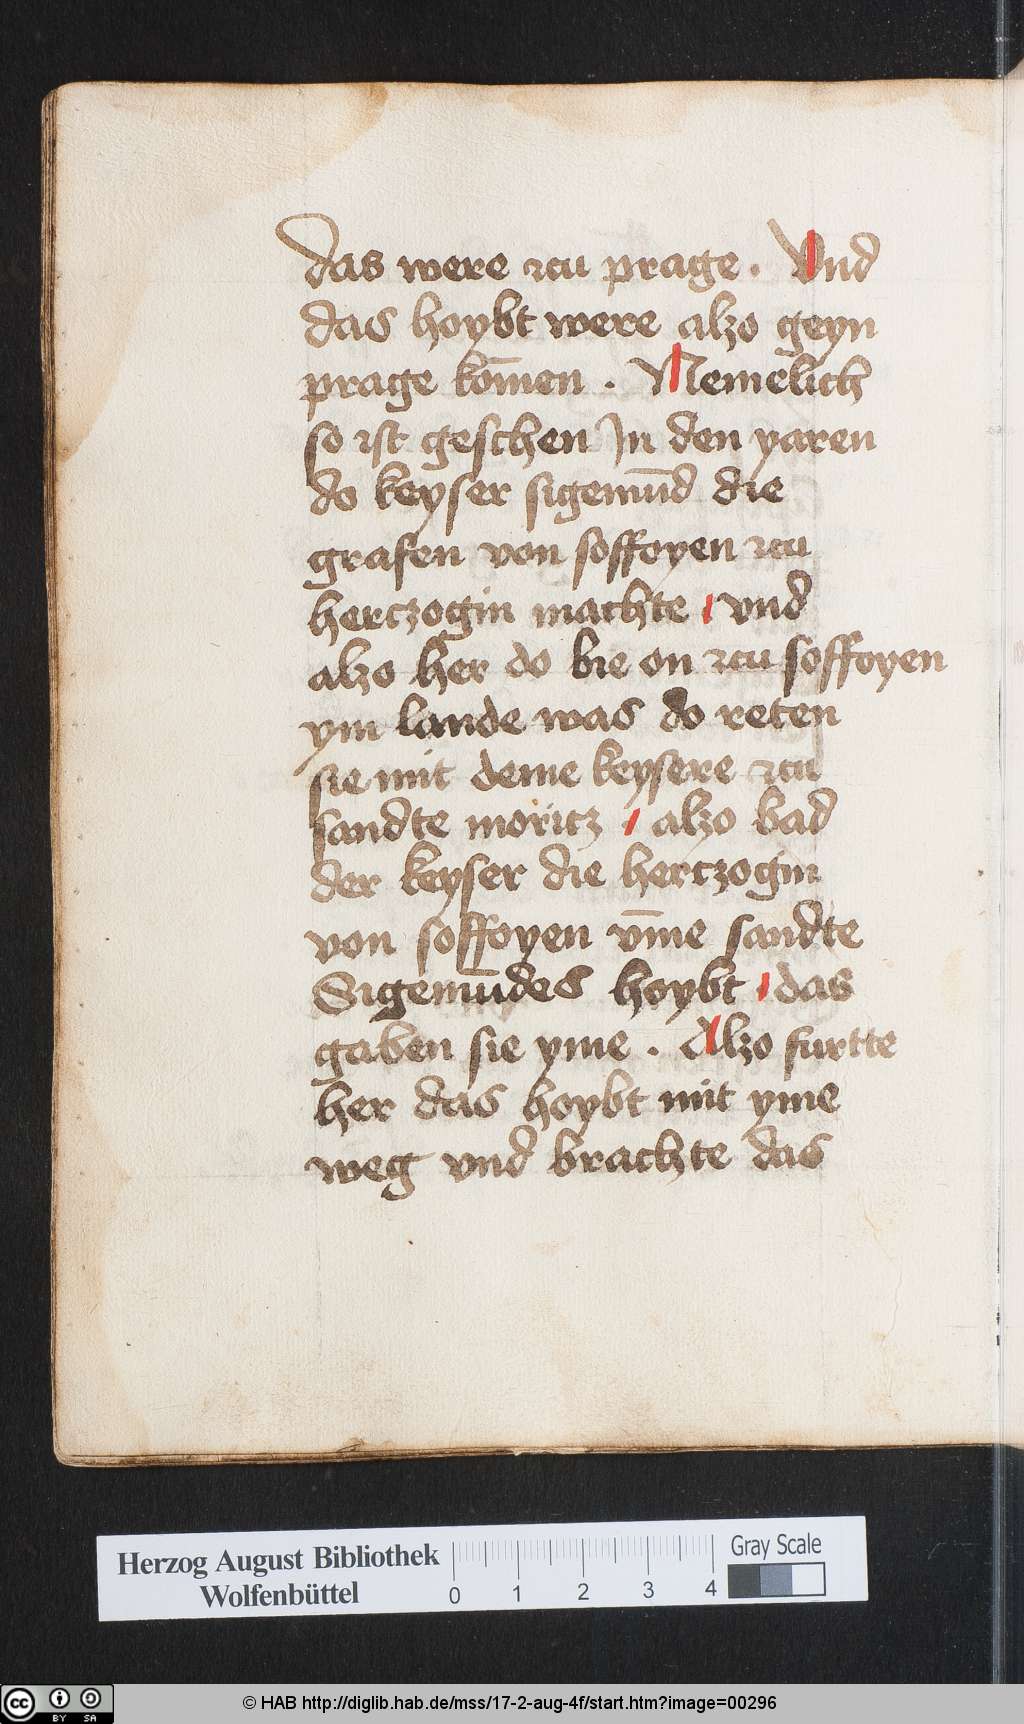 das were zcu prage . Vnd
das hoybt were alzo geyn
prage kom̄en . Nemelich
so ist geschen Jn den yaren
do keyser sigemūd die
grafen von soffoyen zcu
herczogin machte / vnd
alzo her do bie on zcu soffoyen
ym lande was do reten
sie mit deme keysere zcu
sandte moritz / alzo bad
der keyser die herczogin
von soffoyen vm̄e sandte
Sigemūdes hoybt / das
gaben sie yme . Alzo furtte
her das hoybt mit yme
weg vnd brachte das
Herzog August Bibliothek
Wolfenbüttel
0 1 2 3 4
Gray Scale
cc BY SA
© HAB http://diglib.hab.de/mss/17-2-aug-4f/start.htm?image=00296